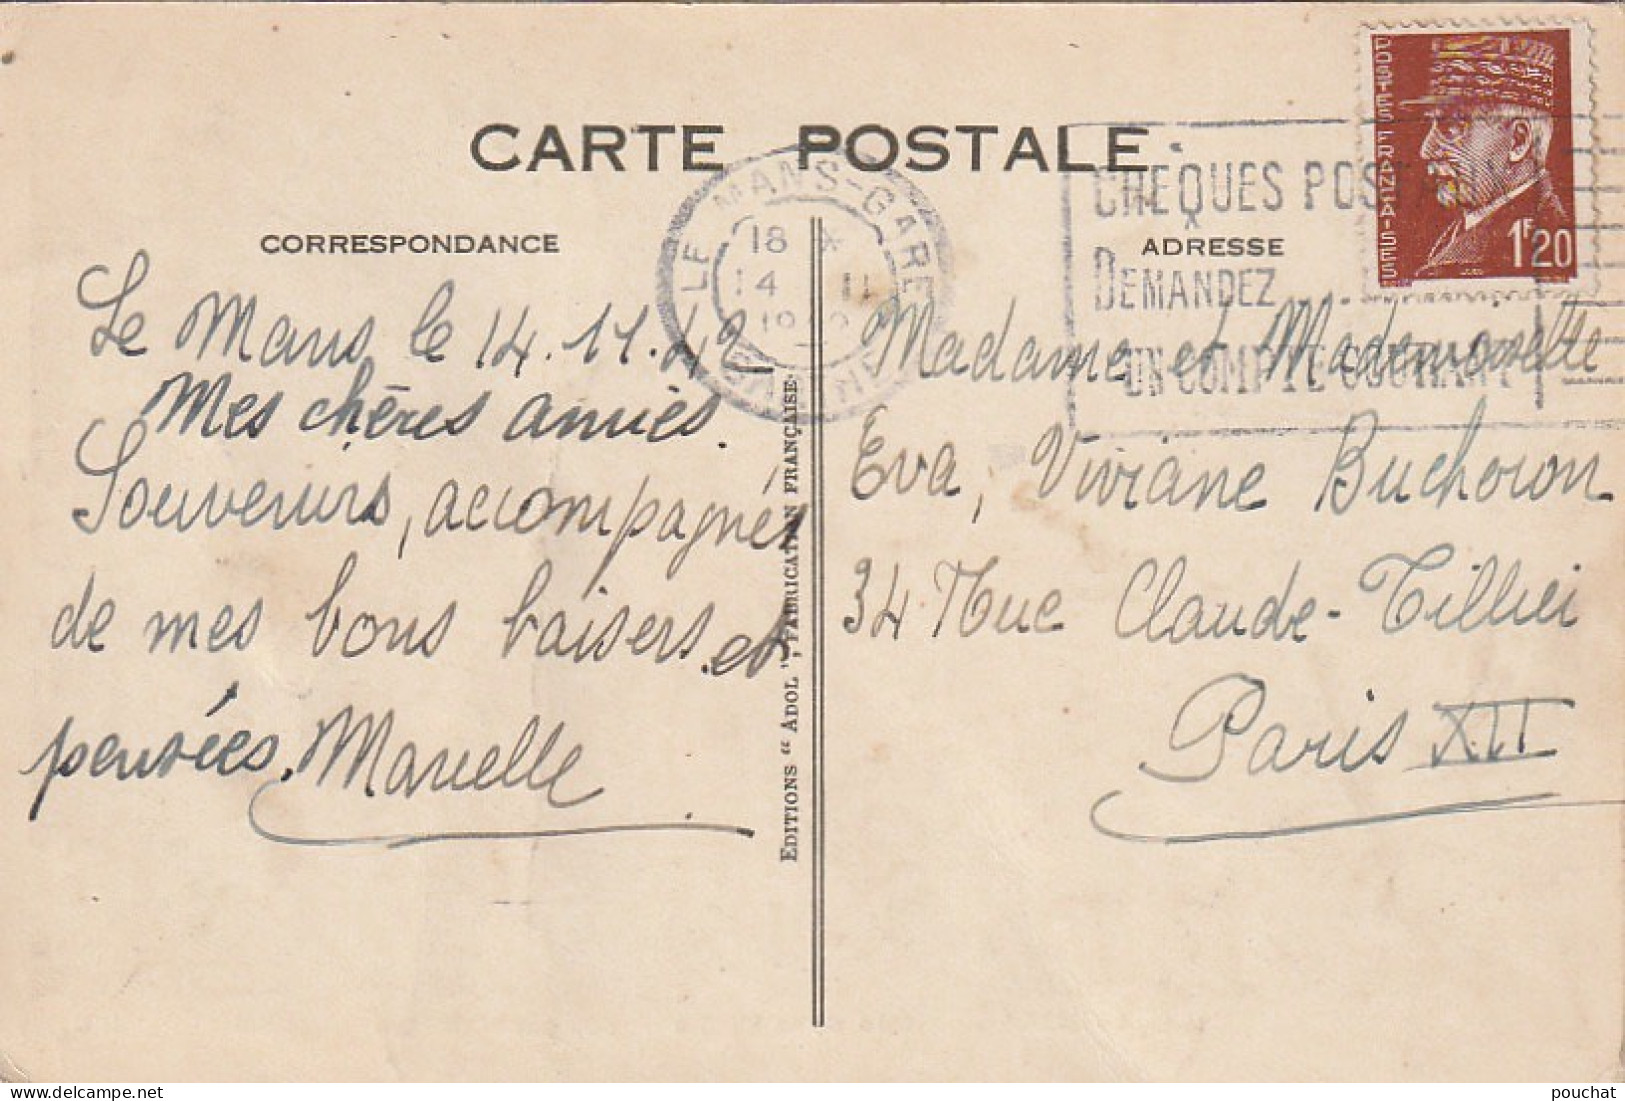 CARTE POSTALE
LE MANS-GARE
18 *
14 11
CHÈQUES POSTAUX
DEMANDEZ
UN COMPTE COURANT
POSTES FRANÇAISES
1F20
CORRESPONDANCE
Le Mans le 14.11.42
Mes chères amies.
Souvenirs, accompagnés
de mes bons baisers et
pensées. Marcelle
EDITIONS "ADOL", FABRICATION FRANÇAISE.
ADRESSE
Madame et Mademoiselle
Eva, Viviane Buchoron
34 Rue Claude-Tillier
Paris XII
delcampe.net
pouchat